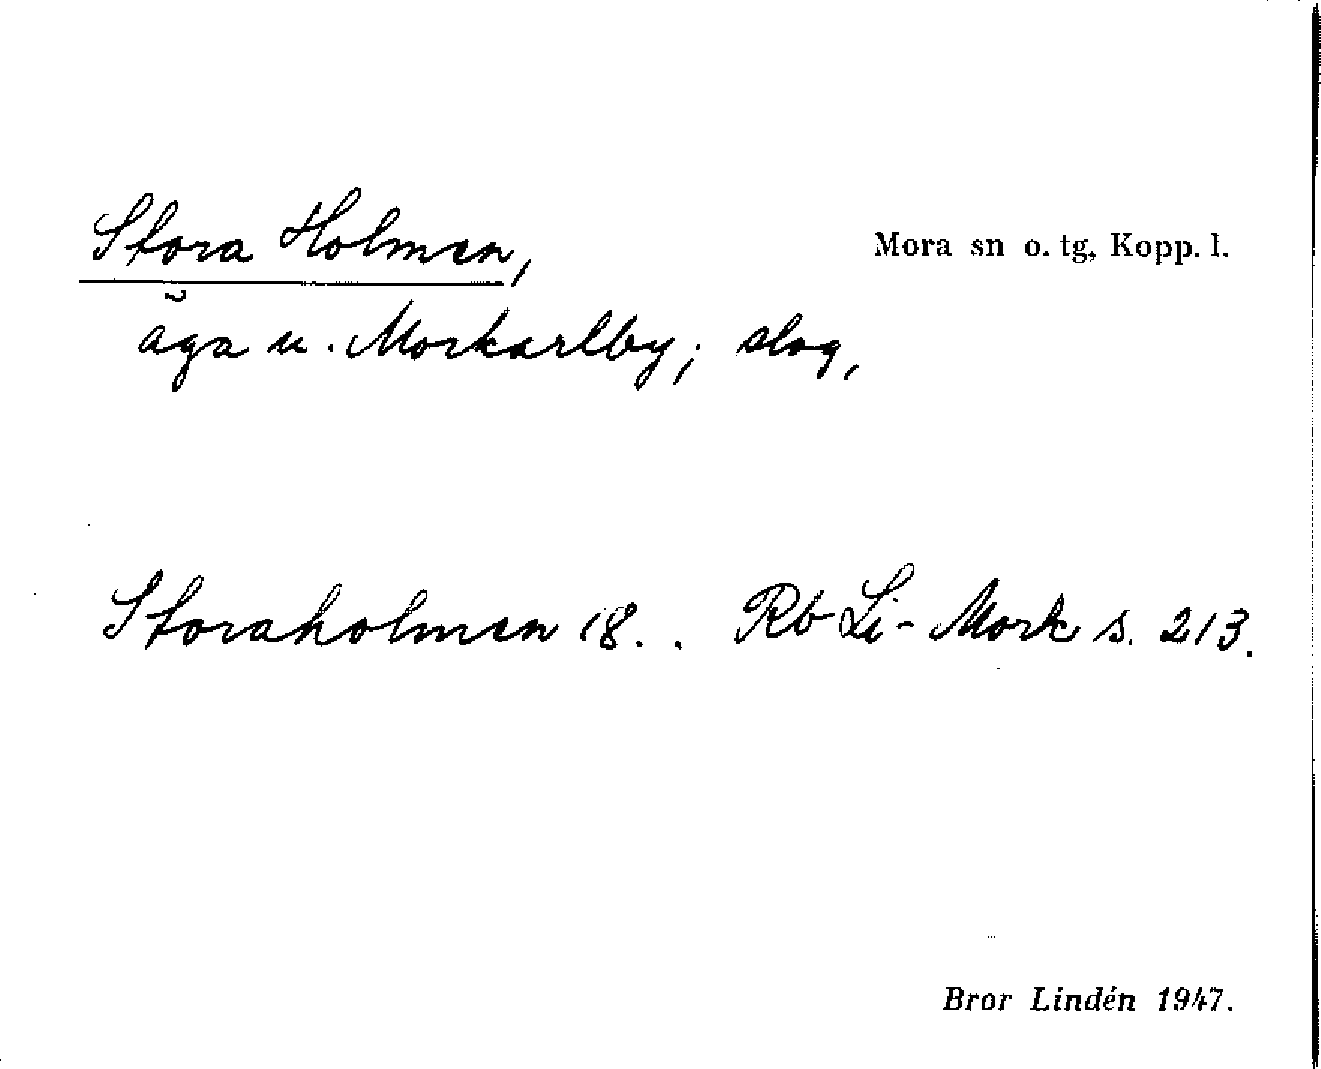 Stora Holmen, Mora sn o. tg, Kopp. l.
äga u. Morkarlby; slog,
Storaholmen 18.. Rb Li-Mork s. 213.
Bror Lindén 1947.